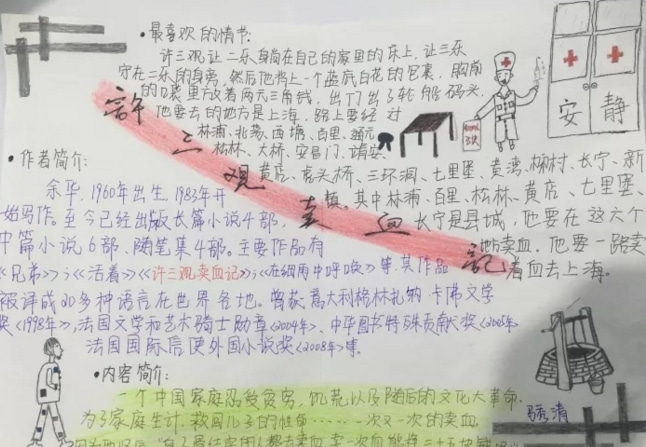 ·最喜欢的情节:
许三观让二乐身尚在自己的家里的床上,让三乐
守在二乐的身旁,然后他背上一个蓝底白花的包裹,胸前
的口袋里放着两元三角钱,出了门去了轮船码头。
他要去的地方是上海,路上要经过
林浦、北荡、西塘、百里、通元、
松林、大桥、安昌门、靖安、
黄店、虎头桥、三环洞、七里堡、黄湾、柳村、长宁、新
镇。其中林浦、百里、松林、黄店、七里堡、
长宁是县城,他要在这六个
地方卖血,他要一路卖
着血去上海。
許三观卖血記
安 静
·作者简介:
余华,1960年出生,1983年开
始写作。至今已经出版长篇小说4部,
中篇小说6部、随笔集4部。主要作品有
《兄弟》;《活着》《许三观卖血记》;《在细雨中呼唤》等.其作品
被译成20多种语言在世界各地。曾获意大利格林扎纳·卡佛文学
奖《1998年》,法国文学和艺术骑士勋章《2004年》、中华图书特殊贡献奖《2005年
法国国际信使外国小说奖《2008年》等.
·内容简介:
一个中国家庭忍受贫穷,饥荒以及随后的文化大革命.
为了家庭生计,救回儿子的性命……一次又一次的卖血